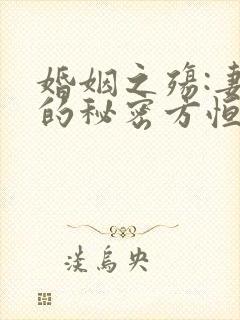 婚姻之殇:妻
的秘密方恒
淡乌央